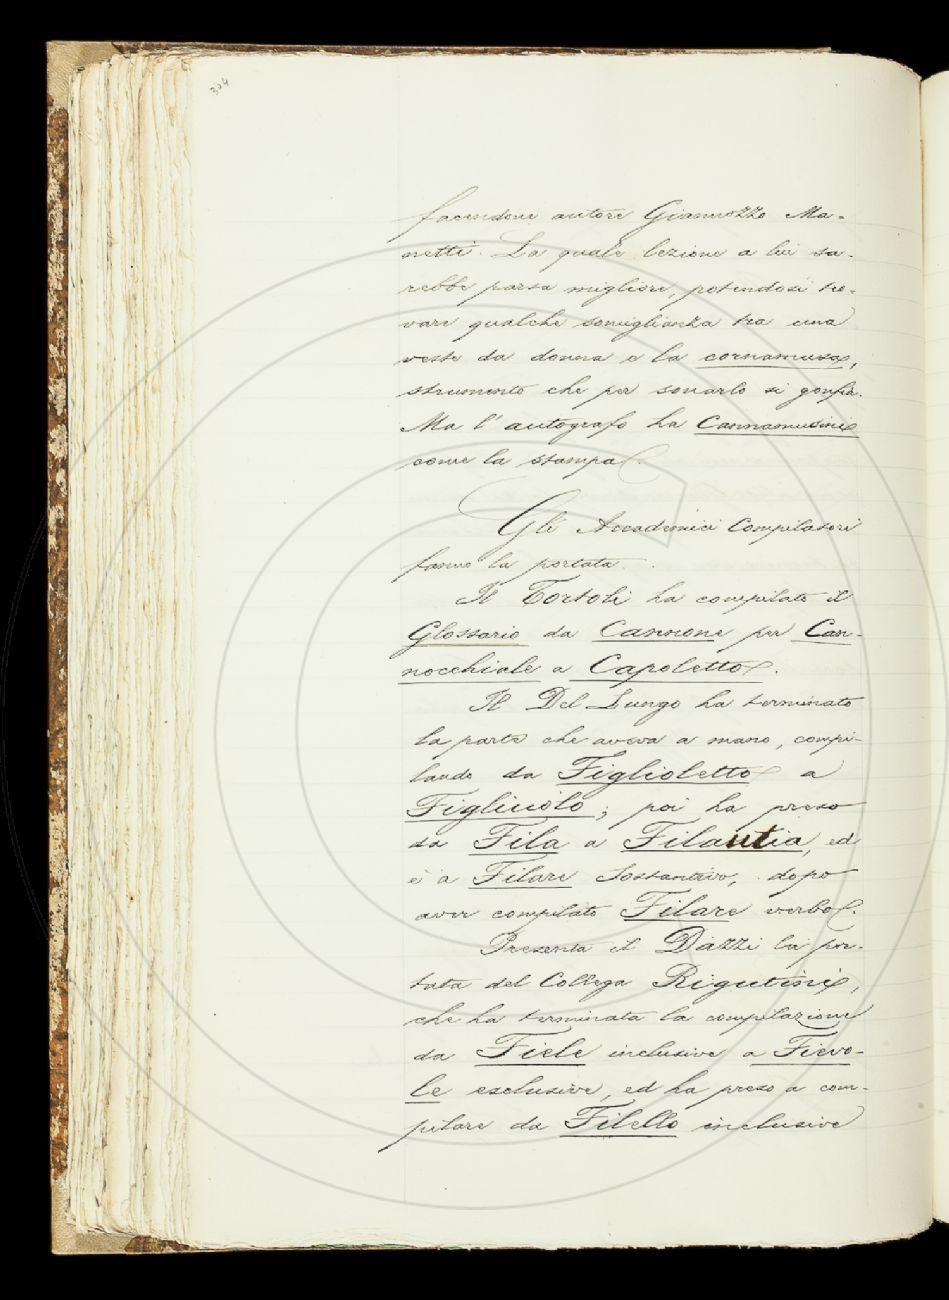 304
facendone autore Giannozzo Ma-
netti. La quale lezione a lui sa-
rebbe parsa migliore, potendosi tro-
vare qualche somiglianza tra una
veste da donna e la cornamusa,
strumento che per sonarlo si gonfia.
Ma l'autografo ha Cannamusini
come la stampa.
Gli Accademici Compilatori
fanno la portata.
Il Tortoli ha compilato il
Glossario da Cannone per Can-
nocchiale a Capoletto.
Il Del Lungo ha terminato
la parte che aveva a mano, compi-
lando da Figlioletto a
Figliuolo; poi ha preso
da Fila a Filautia, ed
è a Filare Sostantivo, dopo
aver compilato Filare verbo.
Presenta il Dazzi la por-
tata del Collega Rigutini,
che ha terminata la compilazione
da Fiele inclusive a Fievo-
le exclusive, ed ha preso a com-
pilare da Filello inclusive